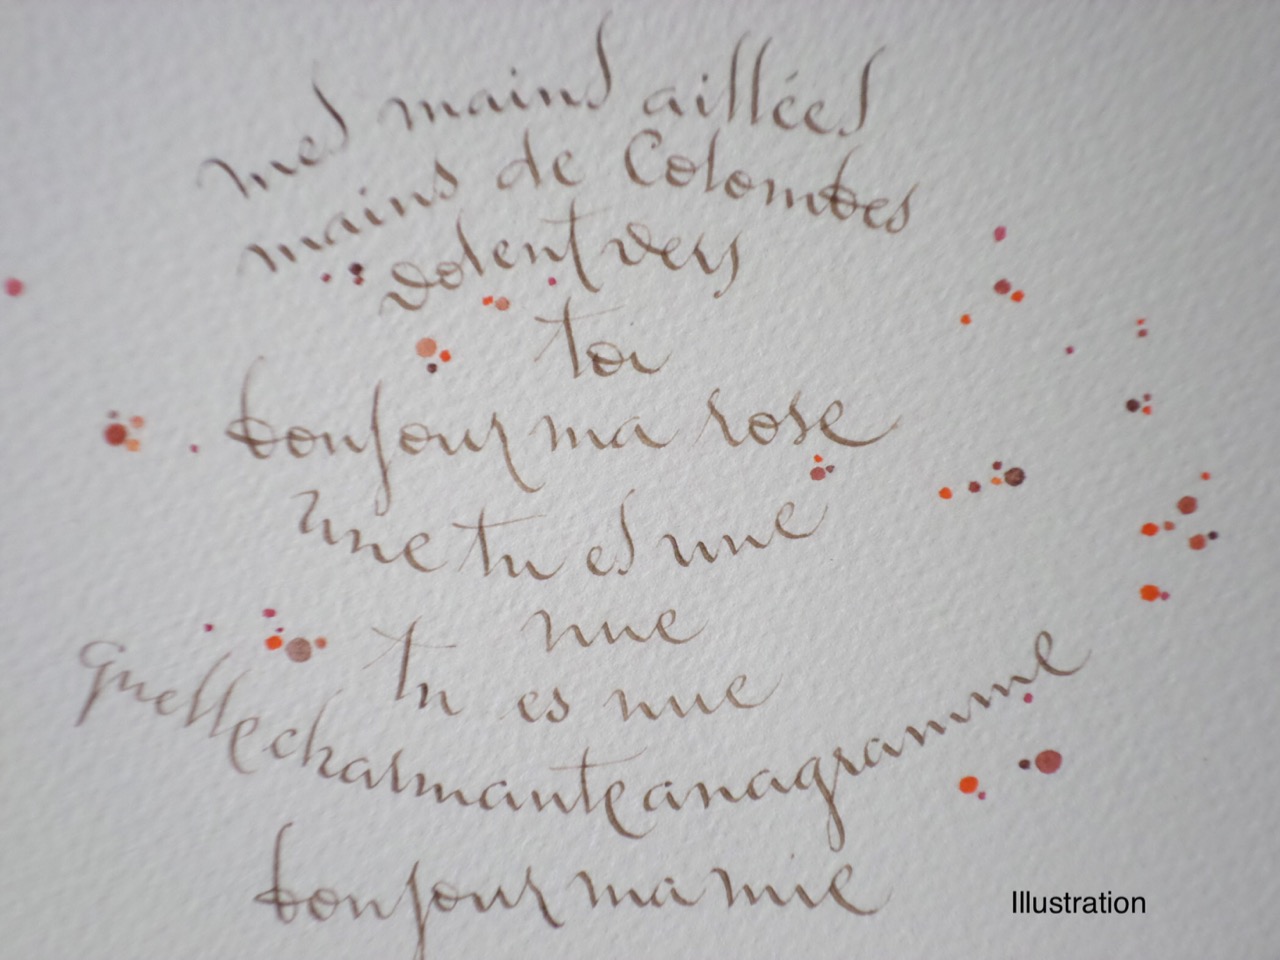 mes mains aillées
mains de Colombes
volent vers
toi
bonjour ma rose
une tu es une
nue
tu es nue
quelle charmante anagramme
bonjour ma mie
Illustration